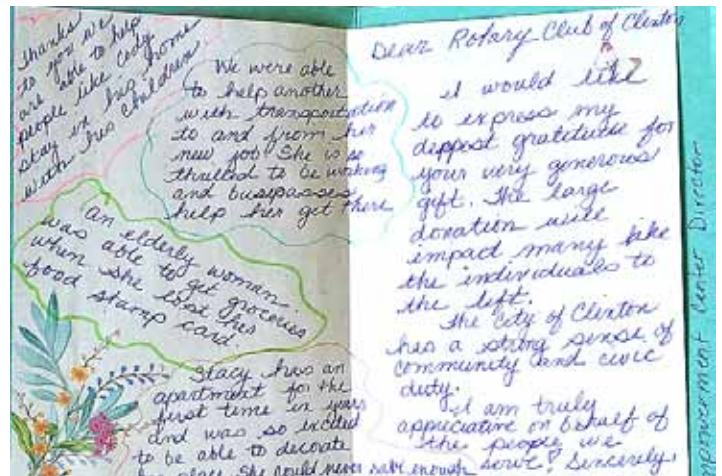 Thanks
to you we
are able to help
people like Cody
stay in his home
with his children.
We were able
to help another
with transportation
to and from her
new job! She is so
thrilled to be working
and buspasses
help her get there
An elderly woman
was able to get groceries
when she lost her
food stamp card
Stacy has an
apartment for the
first time in years
and was so excited
to be able to decorate
her place. She could never save enough
Dear Rotary Club of Clinton
I would like
to express my
deppest gratitude for
your very generous
gift. The large
donation will
impact many like
the individuals to
the left.
The City of Clinton
has a strong sense of
community and civic
duty.
I am truly
appreciative on behalf of
the people we
serve! Sincerely,
powerment Center Director